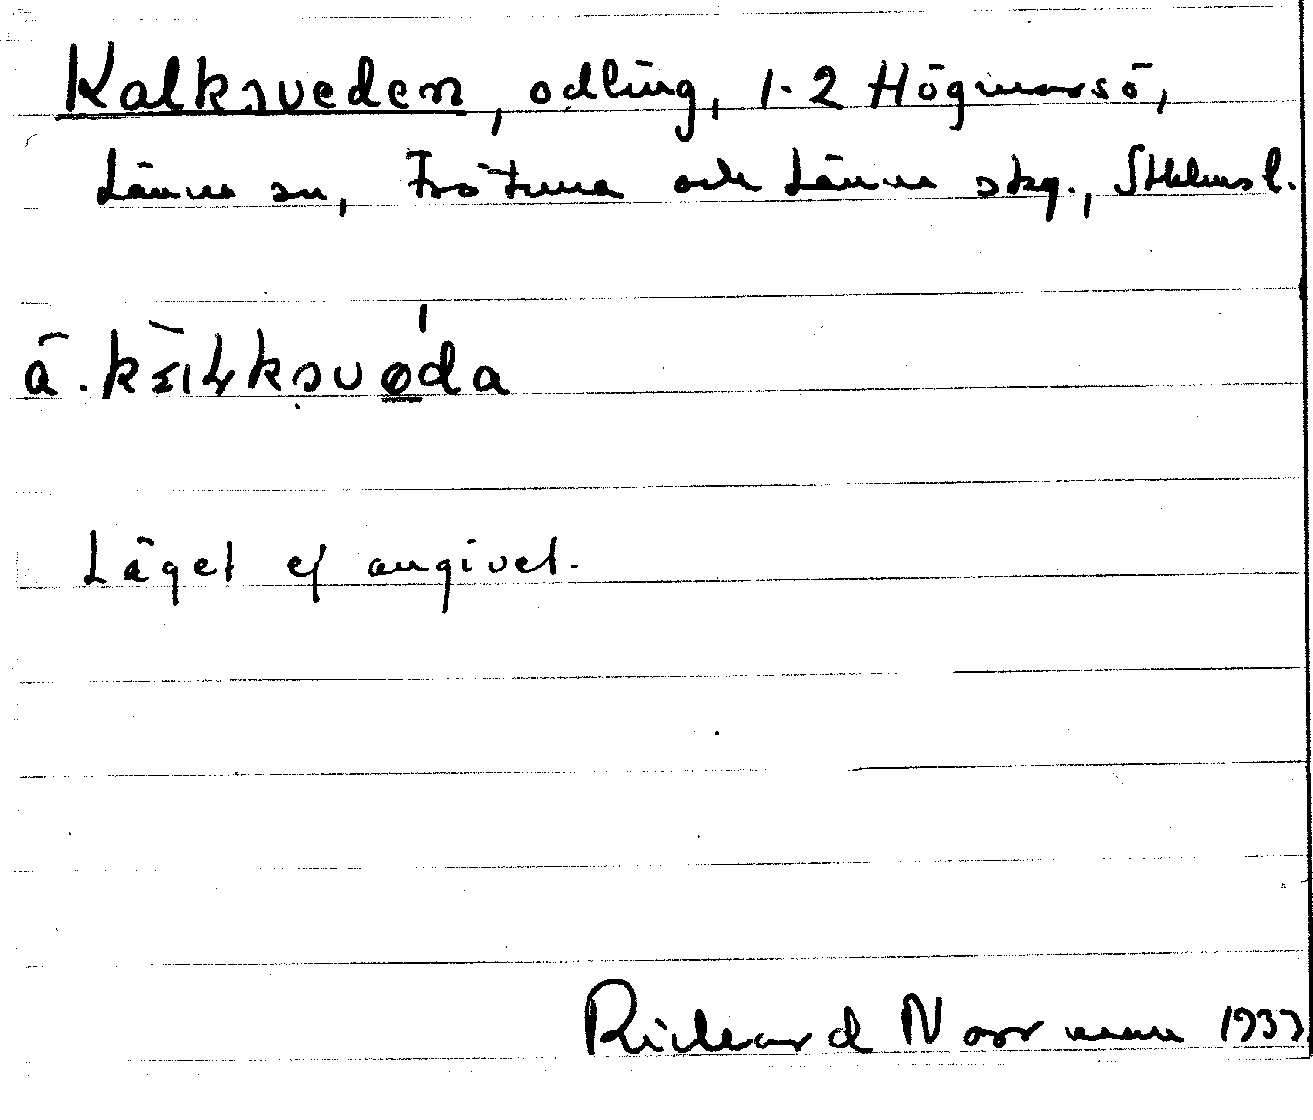 Kalksveden, odling, 1-2 Högmarsö,
Länna sn, Frötuna och Länna skg., Sthlms l.
Läget ej angivet.
Richard Norrman 1933